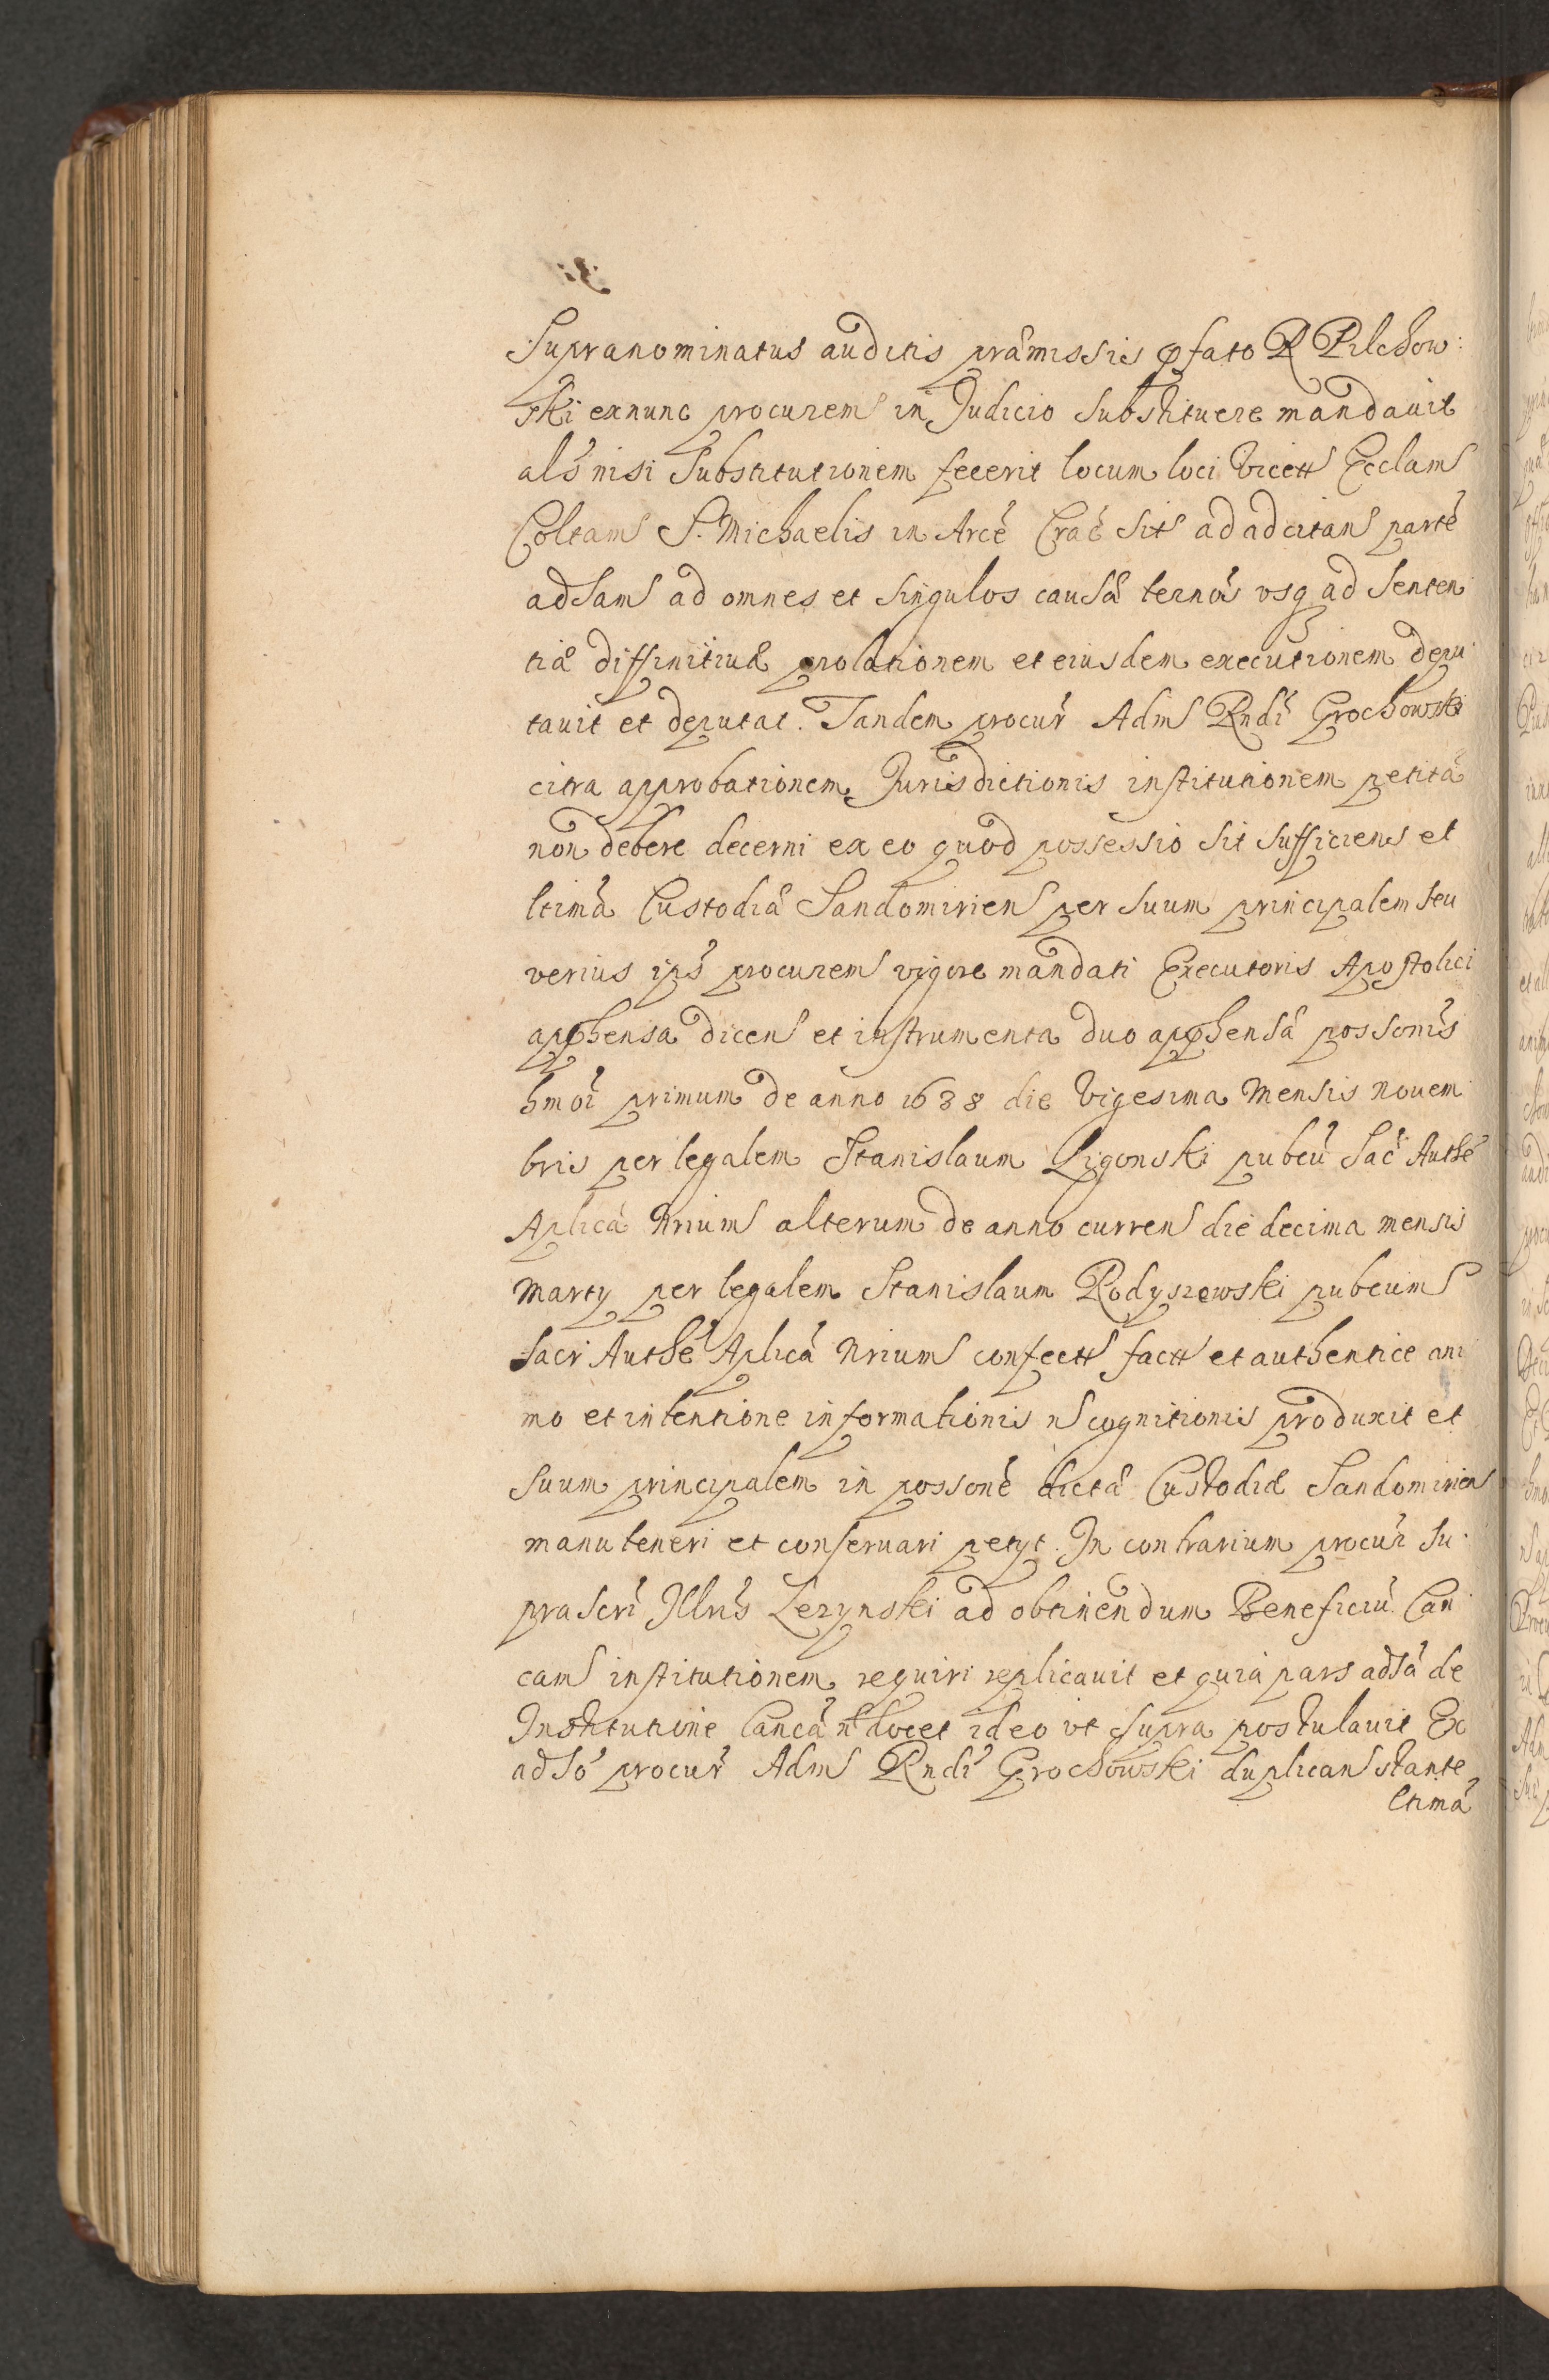 Supranominatus auditis præmissis pfato R Pilchow:
ski exnunc procurem in Judicio Substituere mandavit
als nisi Substitutionem fecerit locum loci Vicett Ecclam
Coltam S. Michaelis in Arcē Crač sit ad ad citan partē
adsam ad omnes et singulos causæ ternōs vsq ad Senten
tiæ diffinitiuæ prolationem et eiusdem executionem depu
tauit et deputat. Tandem procur̃ Adm Rndi Grochowski
citra approbationem Jurisdictionis institutionem petitā
non debere decerni ex eo quod possessio sit sufficiens et
ltimā Custodiæ Sandomirien per suum principalem seu
verius ips procurem vigore mandati Executoris Apostolici
apphensa dicen et instrumenta duo apphensæ possonis
hmōi primum de anno 1638 die Vigesima Mensis Nouem
bris per legalem Stanislaum Ligonski pubcū Sač Authē
Aplicā Nrium alterum de anno curren die decima mensis
Marty per legalem Stanislaum Rodyszowski pubcum
sacr Authē Aplicā Nrium confectt factt et authentice ani
mo et intentione informationis n cognitionis produxit et
suum principalem in possonē dictæ Custodiæ Sandomirien
manuteneri et conseruari petyt. In contrarium procur Su
prascri Illris Lezynski ad obtinendum Beneficiū Can
cam institutionem requiri replicauit et quia pars adsā de
Institutione Cancā n docet ideo vt supra postulauit Ex
adsō procur̃ Adm Rndi Grochowski duplican stante
ltimā